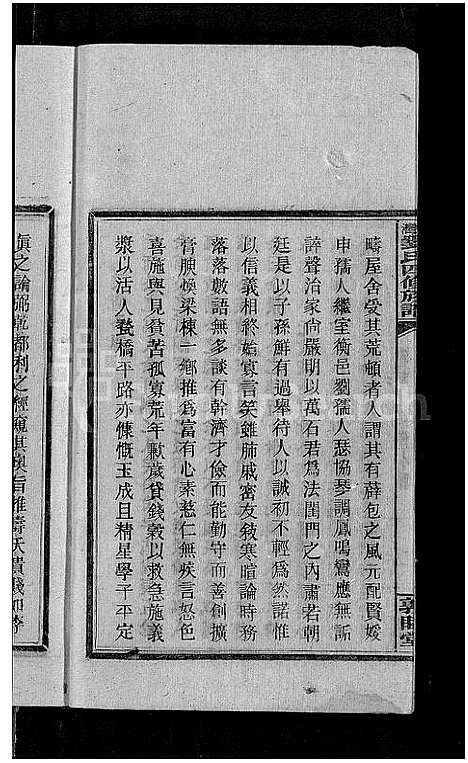 氏四修族譜
疇屋舍受其荒頓者人謂其有薜包之風元配賢媛
申孺人繼室衡邑劉孺人瑟協琴調鳳鳴鸞應無詬
誶聲治家尙嚴明以萬石君爲法閨門之內肅若朝
廷是以子孫鮮有過舉待人以誠初不輕爲然諾惟
以信義相終始寡言笑雖肺戚密友敍寒暄論時務
落落數語無多談有幹濟才儉而能勤守而善創擴
膏腴煥梁棟一鄉推爲富有心素慈仁無疾言怒色
喜施與見貧苦孤寡荒年歉歲貸錢穀以救急施義
漿以活人甃橋平路亦慷慨玉成且精星學子平定
敦睦堂
眞之論 都利之經窺其奧旨雅壽夭貴賤如李